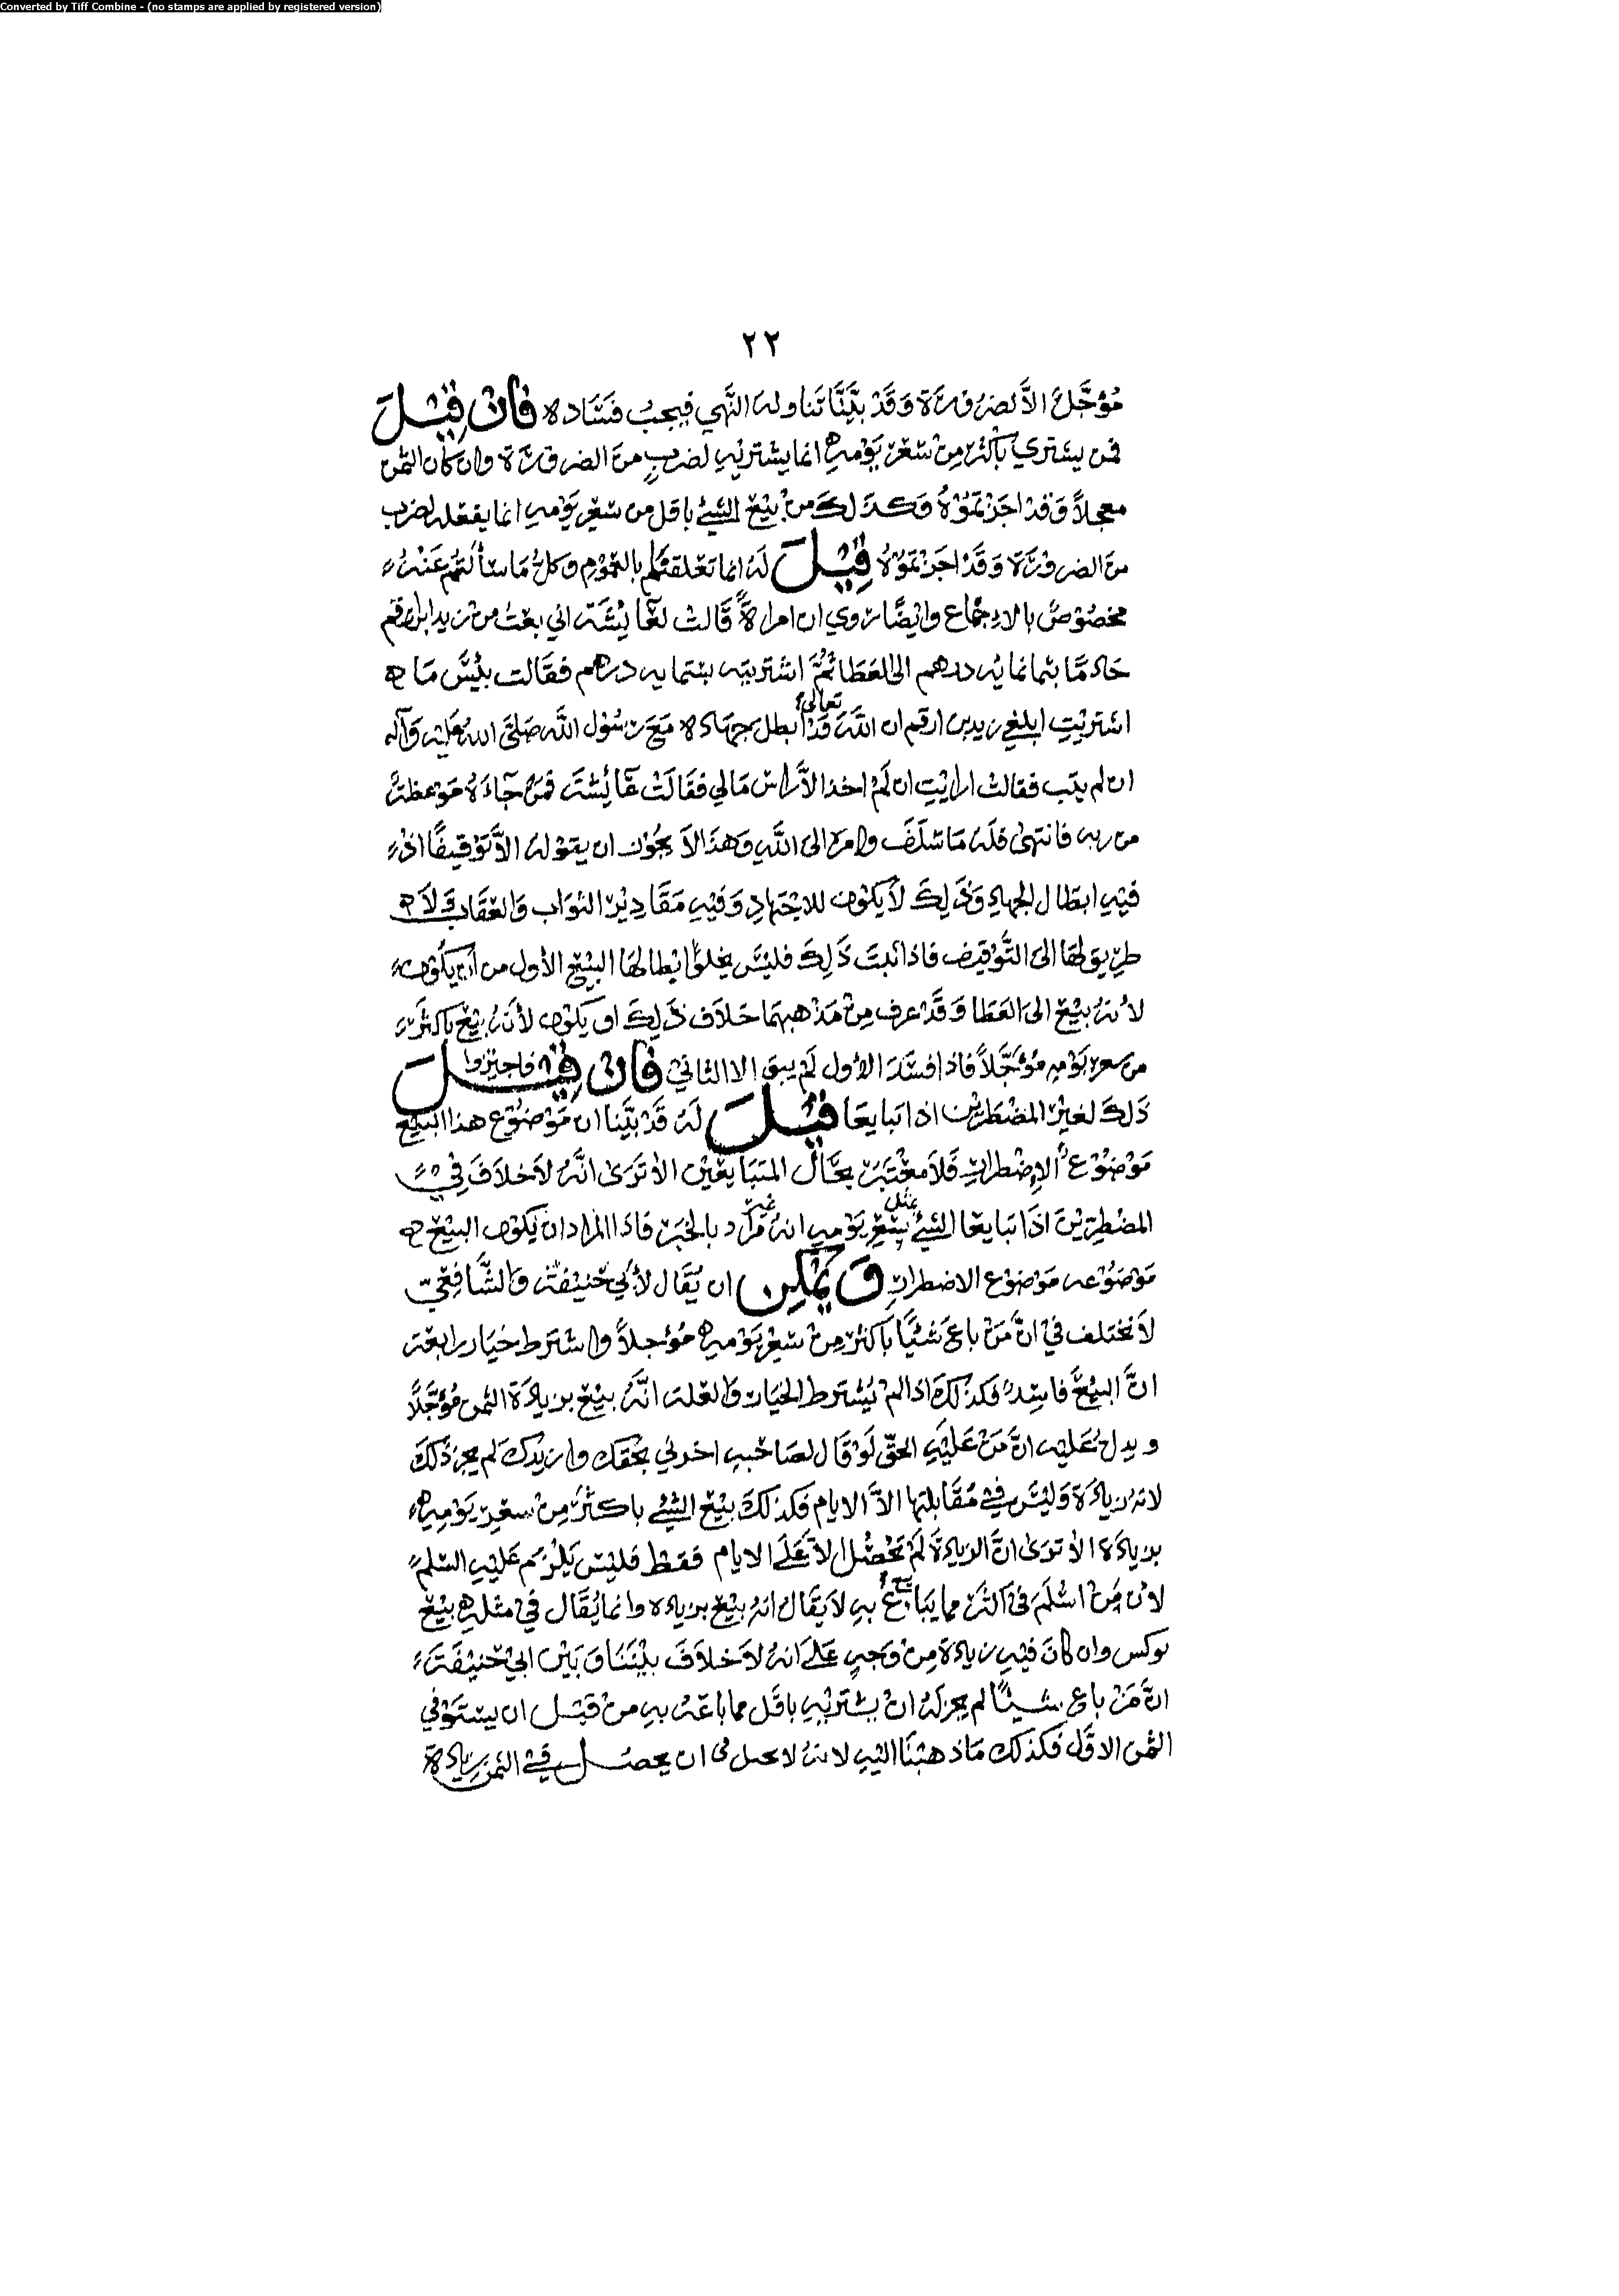 Converted by Tiff Combine - (no stamps are applied by registered version)
٢٢
مُؤجَّلٌ الاَّ لضرُورَة وَقَدْ بيَّنَّا تَناوله النَّهي فيجبُ فسَاده فَان قِيْلَ
فمن يشتري بأكثر مِنْ سَعْر يَوْمِه انما يشتريْهِ لضربٍ منَ الضرورَة وان كان الثمن
معجلاً وَقدْ اجَزْتمُوْهُ وَكذلكَ من بَيْع الشيئ باقل من سعْرِ يَوْمِهِ انما يفعله لضربٍ
منَ الضرورَة وَقَدْ اجَزْتموْهُ قِيْلَ لَهُ انما تعَلقتُم بالعمُوْمِ وَكلُّ مَا سَألتُم عَنْهُ
مخصُوْصٌ بالاِجْمَاع وَايْضًا روي ان امراةً قَالت لعَآئِشَة اني بعْتُ من زيد ابن ارقم
خادمًا بثمانمايه درهم الى العَطَا ثُمَّ اشتريته بستمايه درهم فقَالت بئسَ مَا
اشتريْتِ ابلغي زيد بن ارقم ان اللهَ تعَالى قَدْ ابطل جهَاده مَعَ رسُوْل الله صَلى الله عَليْه وَآله
ان لم يتب فقالت ارايْتِ ان لمْ اخذ الاَّ راس مَالي فقَالتْ عَآئِشَة فمَنْ جَاءَهُ مَوْعظةٌ
من ربه فانتهى فلهُ مَا سَلَفَ وامره الى اللهِ وَهَذا لاَ يجُوْز ان يقوله الاَّ تَوْقيفًا اذْ
فيْهِ ابطال الجهَادِ وَذَلِكَ لاَ يكوْن للاجْتهادِ وَفيْهِ مَقَادِيْر الثوَاب وَالعقَاب وَلاَ
طرِيق لهَا الى التَّوْقيف فاذا ثبتَ ذَلِكَ فليْسَ يخلوْا ابْطالهَا البيْع الأول من ان يكُوْن
لأنهُ بَيْع الى العَطا وَقَدْ عرف مِنْ مَذْهبهَا خلاَف ذلِكَ او يكوْن لأنَهُ بيْع باكثَر
من سعر يَوْمهِ مُؤجَّلاً فاذا فسَدَ الأول لَم يبق الا الثاني فَان قِيْلَ فاجيْزوا
ذَلكَ لغيْر المضْطرِيْن اذا تبايعَا قِيْلَ لَهُ قَدْ بيَّنا ان مَوْضوْع هذا البَيْع
مَوْضوْع الاِضْطرارِ فَلاَ معْتبَر بحَال المتبَايعَيْن الا تَرَى انَّهُ لاَ خلاَفَ فِي
المضْطرِيْنَ اذَا تبَايعَا الشيئ بمثل سِعْرِ يَوْمِهِ انهُ غيْر مرَاد بالخبَر فاذا المراد ان يكوْن البيْع
مَوْضوْعه مَوْضوْع الاضطرارِ وَيمْكِن ان يُقَال لأبي حَنيْفَة وَالشَّافعِيّ
لاَ نختلف فيْ انَّ مَنْ باعَ شَيْئًا باَكثر مِنْ سِعْر يَوْمِه مُؤجلاً واشترط خيَار رابعَة
انَّ البيْعَ فاسِدٌ فكذلكَ اذا لم يُشْترط الخيَار وَالعلة انَّهُ بيْع بزيَادَة الثمن مُؤجَّلاً
ويدلُ عَليْه انَّ مَنْ عَليْهِ الحَقّ لَوْ قَال لصَاحبهِ اخرني بحَقك وازيدك لم يجز ذَلكَ
لانهُ زيادَة وَليْسَ فيْ مُقَابلتِها الاَّ الايام فكذلكَ بيْع الشيْئ باكثر مِنْ سعْرِ يَوْمِهِ
بزيادَة الاَ تَرَى انَّ الزيادَة لَمْ تحْصُل الاَّ عَلَى الايام فقط فليْس يَلْزم عَليْهِ السّلم
لأن مَنْ اسْلَمَ فيْ اكثر مما يتبَايعُ بهِ لاَ يقَال انهُ بيْع بزياده وانما يُقَال فيْ مثلهِ بيْع
بوكس وان كانَ فيْهِ زيادَة مِنْ وَجهٍ عَلَى انهُ لاَ خلاَفَ بيْنَنَا وَبَيْن ابي حَنيْفَة
انَّ مَنْ باع شيئًا لم يجز لهُ انْ يشتريْهِ باقَل مما باعَهُ بهِ منْ قبْل ان يستَوْفي
الثمن الاوَّل فكذلكَ مَا ذهبْنَا اليْهِ لانهُ لا يحل لهُ ان يحصل فيْ الثمن زيادَة